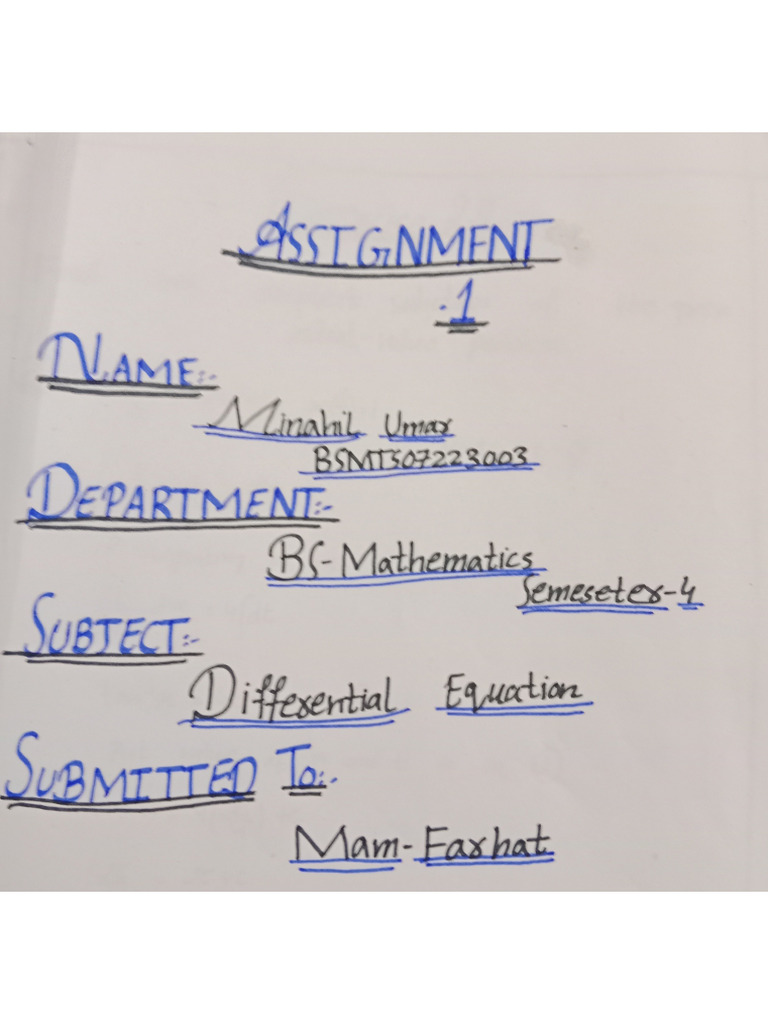 ASSIGNMENT
.1
NAME:-
Minahil Umar
BSMTS07223003
DEPARTMENT:-
BS-Mathematics
Semeseter-4
SUBJECT:-
Differential Equation
SUBMITTED To:-
Mam-Farhat